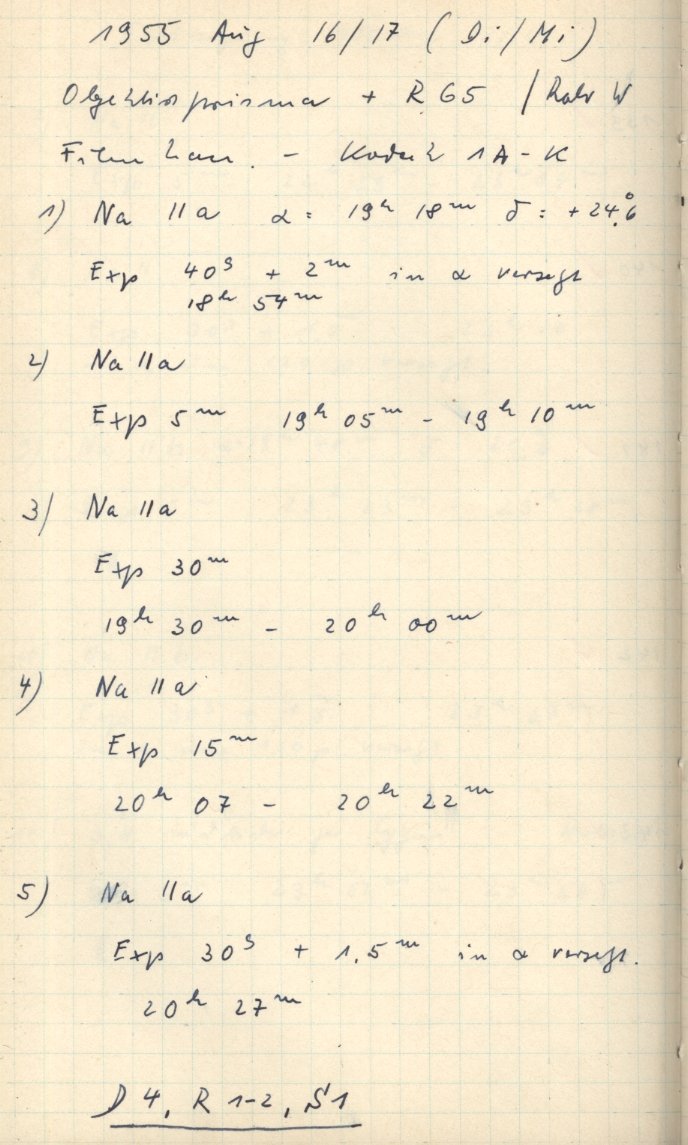 1955 Aug 16/17 (Di/Mi)
Objektivprisma + RG5 / Rohr W
Film kam. - Kodak 1A-K
1) Na IIa α: 19h 18m δ: +24°.6
Exp 40s + 2m in α versetzt
18h 54m
2) Na IIa
Exp 5m 19h 05m - 19h 10m
3) Na IIa
Exp 30m
19h 30m - 20h 00m
4) Na IIa
Exp 15m
20h 07 - 20h 22m
5) Na IIa
Exp 30s + 1,5m in α versetzt.
20h 27m
D 4, R 1-2, S1